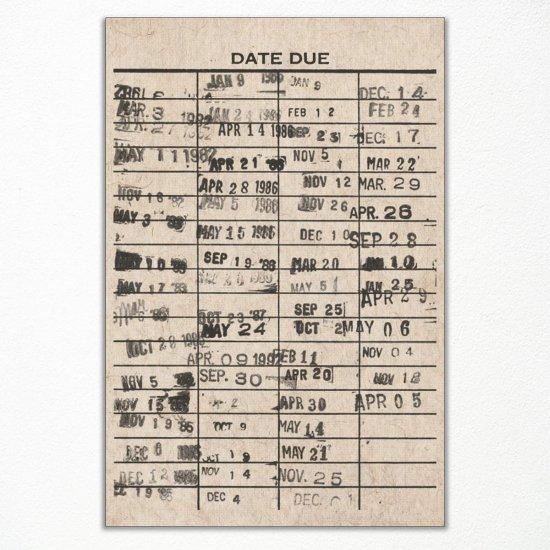 DATE DUE
MAR. 3
MAY 11 1982
NOV 16 '82
MAY 3
MAY 10
MAY 17 '83
OCT 28
NOV 5
NOV 15 '85
NOV 19 '85
DEC 6
DEC 12 1985
DEC 19 '85
JAN 9 1986
JAN 24 1986
APR 14 1986
APR 21 '86
APR 28 1986
MAY 5 1986
MAY 15 1986
SEP 19 '86
OCT 23 '87
MAY 24
APR. 09 1992
SEP. 30
2
OCT 9
OCT 19
NOV 14
DEC 4
JAN 9
FEB 12
SEP. 23
NOV 5
NOV 12
NOV 26
DEC 10
MAR 20
MAY 51
SEP 25
OCT 2
FEB 11
APR 20
APR 30
MAY 14
MAY 21
NOV. 25
DEC. 01
DEC. 14
FEB 24
DEC. 17
MAR 22
MAR. 29
APR. 26
SEP 28
JAN 10
JAN 25
APR 29
MAY 06
NOV 04
NOV 12
APR 05